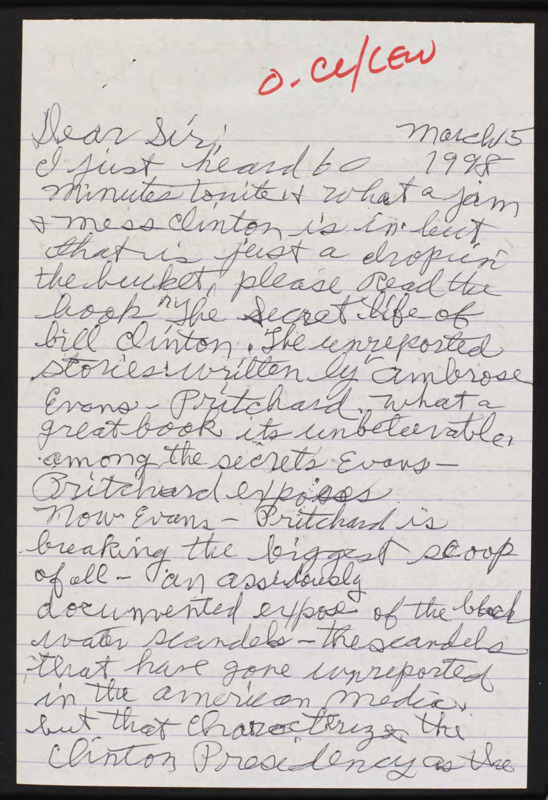 O. CL/LEW
Dear Sir, March 15
I just heard 60 1998
minutes tonite & what a jam
& mess Clinton is in but
that is just a drop in
the bucket, please Read the
book "The Secret life of
bill Clinton. The unreported
stories" written by ambrose
Evans-Pritchard. What a
great book its unbeleivable,
among the secrets Evans-
Pritchard exposes
Now Evans-Pritchard is
breaking the biggest scoop
of all - an assidously
documented expose of the black
water scandels - the scandels
that have gone unreported
in the american media,
but that Characterizes the
Clinton Presidency as the